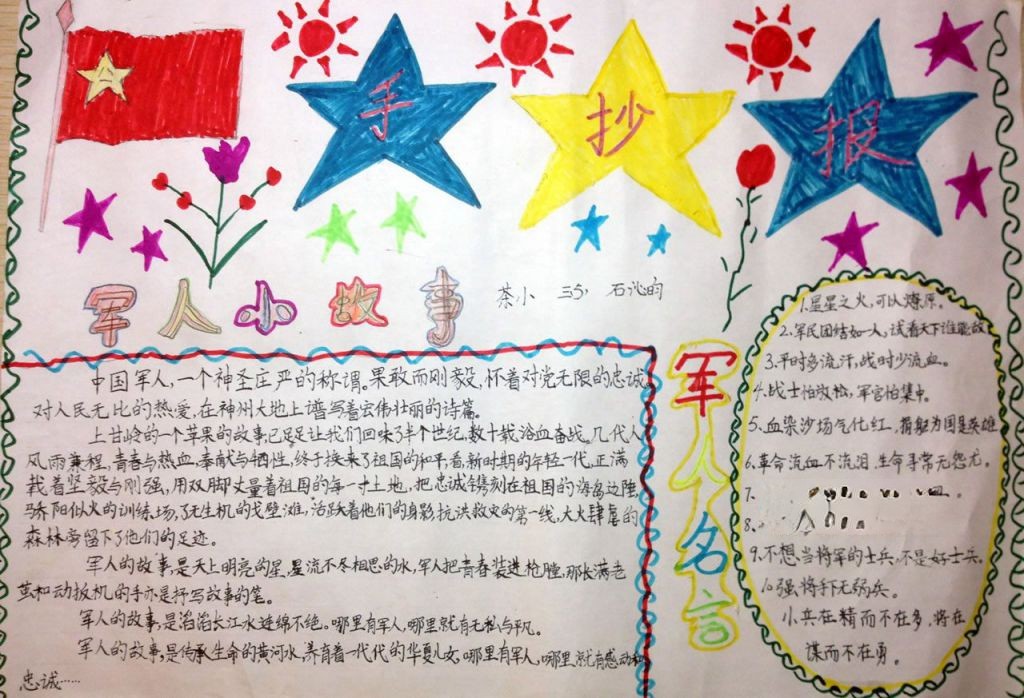 手抄报
军人小故事
茶小 三(5) 石沁
中国军人,一个神圣庄严的称谓。果敢而刚毅,怀着对党无限的忠诚。
对人民无比的热爱,在神州大地上谱写着宏伟壮丽的诗篇。
上甘岭的一个苹果的故事,已足足让我们回味了半个世纪,数十载浴血奋战。几代人
风雨兼程,青春与热血,奉献与牺性,终于换来了祖国的和平,看,新时期的年轻一代,正满
载着坚毅与刚强,用双脚丈量着祖国的每一寸土地,把忠诚镌刻在祖国的海岛边陲
骄阳似火的训练场,了无生机的戈壁滩,活跃着他们的身影,抗洪救灾的第一线,大火肆虐的
森林旁留下了他们的足迹。
军人的故事,是天上明亮的星,星流不尽相思的水,军人把青春装进枪膛,那长满老
茧和动扳机的手亦是抒写故事的笔。
军人的故事,是滔滔长江水连绵不绝。哪里有军人,哪里就有无私与平凡。
军人的故事,是传承生命的黄河水,养育着一代代的华夏儿女,哪里有军人,哪里就有感动和
忠诚……
军人名言
1.星星之火,可以燎原。
2.军民团结如一人,试看天下谁能敌
3.平时多流汗,战时少流血。
4.战士怕放松,军官怕集中。
5.血染沙场气化虹,捐躯为国是英雄
6.革命流血不流泪,生命寻常无怨尤。
7.
8.
9.不想当将军的士兵,不是好士兵。
10强将手下无弱兵。
小兵在精而不在多,将在
谋而不在勇。